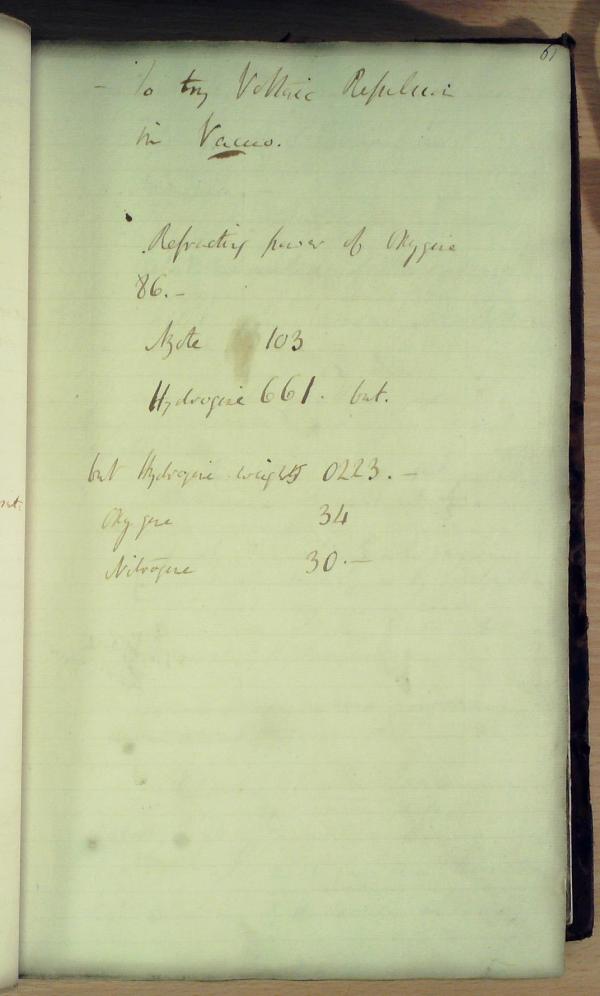 61
- To try Voltaic Repulsion
in Vacuo.
Refracting power of Oxygene
86.-
Azote 103
Hydrogene 661. but.
but Hydrogene weighs 0223.-
Oxygene 34
Nitrogene 30.-